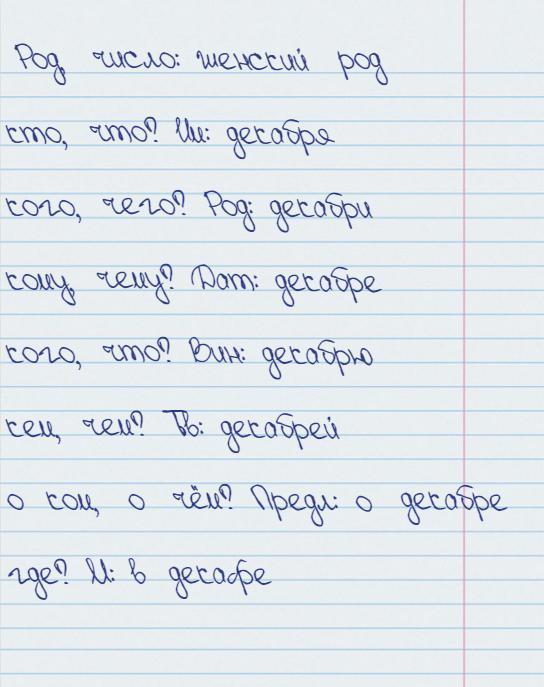 Род, число: женский род
кто, что? Им: декабря
кого, чего? Род: декабри
кому, чему? Дат: декабре
кого, что? Вин: декабрю
кем, чем? Тв: декабрей
о ком, о чём? Предл: о декабре
где? М: в декафе